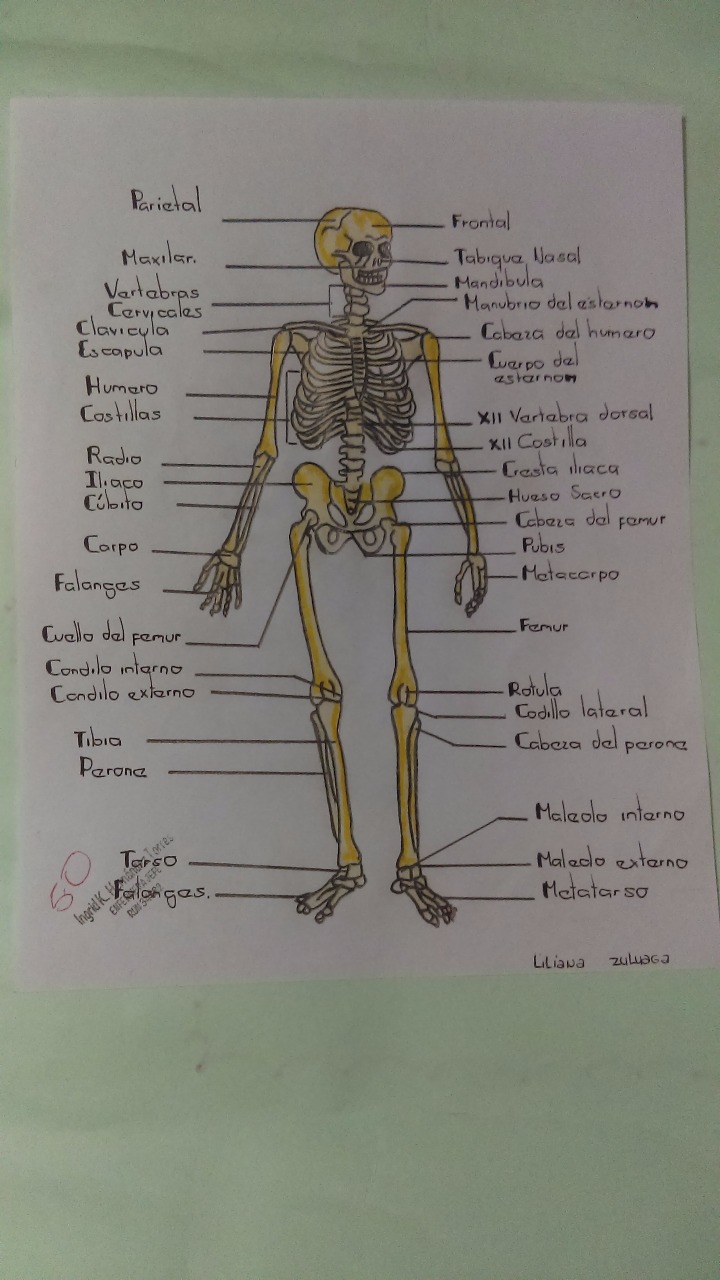 Parietal
Frontal
Maxilar.
Tabique Nasal
Mandibula
Vertebras
Cervicales
Manubrio del esternon
Clavicula
Cabeza del humero
Escapula
Cuerpo del
esternon
Humero
Costillas
XII Vertebra dorsal
XII Costilla
Radio
Cresta iliaca
Iliaco
Hueso Sacro
Cúbito
Cabeza del femur
Carpo
Pubis
Falanges
Metacarpo
Cuello del femur
Femur
Condilo interno
Condilo externo
Rotula
Codillo lateral
Tibia
Cabeza del perone
Perone
Maleolo interno
Tarso
Maleolo externo
Falanges.
Metatarso
50
Ingrid K.
ENFERMERA JEFE
Liliana zuluaga